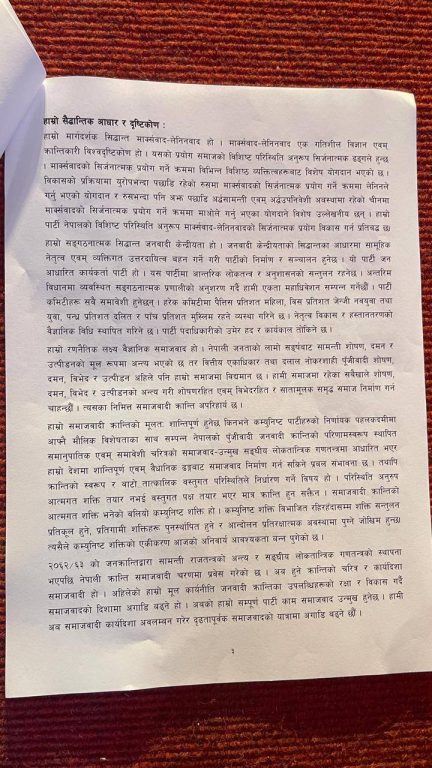 हाम्रो सैद्धान्तिक आधार र दृष्टिकोण :
हाम्रो मार्गदर्शक सिद्धान्त मार्क्सवाद-लेनिनवाद हो । मार्क्सवाद-लेनिनवाद एक गतिशील विज्ञान एवम्
क्रान्तिकारी विश्वदृष्टिकोण हो । यसको प्रयोग समाजको विशिष्ट परिस्थिति अनुरूप सिर्जनात्मक ढङ्गले हुन्छ
। मार्क्सवादको सिर्जनात्मक प्रयोग गर्ने क्रममा विभिन्न विशिष्ठ व्यक्तित्वहरूबाट विशेष योगदान भएको छ ।
विकासको प्रक्रियामा युरोपभन्दा पछाडि रहेको रुसमा मार्क्सवादको सिर्जनात्मक प्रयोग गर्ने क्रममा लेनिनले
गर्नु भएको योगदान र रुसभन्दा पनि अझ पछाडि अर्द्धसामन्ती एवम् अर्द्धउपनिवेशी अवस्थामा रहेको चीनमा
मार्क्सवादको सिर्जनात्मक प्रयोग गर्ने क्रममा माओले गर्नु भएका योगदाने विशेष उल्लेखनीय छन् । हाम्रो
पार्टी नेपालको विशिष्ट परिस्थिति अनुरूप मार्क्सवाद-लेनिनवादको सिर्जनात्मक प्रयोग विकास गर्न प्रतिबद्ध छ
हाम्रो सङ्गठनात्मक सिद्धान्त जनवादी केन्द्रीयता हो । जनवादी केन्द्रीयताको सिद्धान्तका आधारमा सामूहिक
नेतृत्व एवम् व्यक्तिगत उत्तरदायित्व बहन गर्ने गरी पार्टीको निर्माण र सञ्चालन हुनेछ । यो पार्टी जन
आधारित कार्यकर्ता पार्टी हो । यस पार्टीमा आन्तरिक लोकतन्त्र र अनुशासनको सन्तुलन रहनेछ । अन्तरिम
विधानमा व्यवस्थित सङ्गठनात्मक प्रणालीको अनुशरण गर्दै हामी एकता महाधिवेशन सम्पन्न गर्नेछौं । पार्टी
कमिटीहरू सबै समावेशी हुनेछन् । हरेक कमिटीमा पैंतिस प्रतिशत महिला, विस प्रतिशत जेन्जी नवयुवा तथा
युवा, पन्ध्र प्रतिशत दलित र पाँच प्रतिशत मुस्लिम रहने व्यवस्था गरिने छ । नेतृत्व विकास र हस्तान्तरणको
बैज्ञानिक विधि स्थापित गरिने छ । पार्टी पदाधिकारीको उमेर हद र कार्यकाल तोकिने छ ।
हाम्रो रणनैतिक लक्ष्य बैज्ञानिक समाजवाद हो । नेपाली जनताको लामो सङ्घर्षबाट सामन्ती शोषण, दमन र
उत्पीडनको मूल रूपमा अन्त्य भएको छ तर वित्तीय एकाधिकार तथा दलाल नोकरशाही पुँजीवादी शोषण,
दमन, विभेद र उत्पीडन अहिले पनि हाम्रो समाजमा विद्यमान छ । हामी समाजमा रहेका सबैखाले शोषण,
दमन, विभेद र उत्पीडनको अन्त्य गरी शोषणरहित एवम् विभेदरहित र सातामूलक समृद्ध समाज निर्माण गर्न
चाहन्छौं । त्यसका निमित्त समाजवादी क्रान्ति अपरिहार्य छ ।
हाम्रो समाजवादी क्रान्तिको मूलत: शान्तिपूर्ण हुनेछ किनभने कम्युनिष्ट पार्टीहरुको निर्णायक पहलकदमीमा
आफ्नै मौलिक विशेषताका साथ सम्पन्न नेपालको पुँजीवादी जनवादी क्रान्तिको परिणामस्वरूप स्थापित
समानुपातिक एवम् समावेशी चरित्रको समाजवाद-उन्मुख सङ्घीय लोकतान्त्रिक गणतन्त्रमा आधारित भएर
हाम्रो देशमा शान्तिपूर्ण एवम् बैधानिक ढङ्गबाट समाजवाद निर्माण गर्न सकिने प्रबल संभावना छ । तथापि
क्रान्तिको स्वरूप र बाटो तात्कालिक वस्तुगत परिस्थितिले निर्धारण गर्ने विषय हो । परिस्थिति अनुरुप
आत्मगत शक्ति तयार नभई वस्तुगत पक्ष तयार भएर मात्र क्रान्ति हुन सक्तैन । समाजवादी क्रान्तिको
आत्मगत शक्ति भनेको बलियो कम्युनिष्ट शक्ति हो । कम्युनिष्ट शक्ति विभाजित रहिरहँदासम्म शक्ति सन्तुलन
प्रतिकूल हुने, प्रतिगामी शक्तिहरू पुनर्स्थापित हुने र आन्दोलन प्रतिरक्षात्मक अवस्थामा पुग्ने जोखिम हुन्छ
त्यसैले कम्युनिष्ट शक्तिको एकीकरण आजको अनिवार्य आवश्यकता बन्न पुगेको छ ।
२०६२/६३ को जनक्रान्तिद्वारा सामन्ती राजतन्त्रको अन्त्य र सङ्घीय लोकतान्त्रिक गणतन्त्रको स्थापना
भएपछि नेपाली क्रान्ति समाजवादी चरणमा प्रवेस गरेको छ । अब हुने क्रान्तिको चरित्र र कार्यदिशा
समाजवादी हो । अहिलेको हाम्रो मूल कार्यनीति जनवादी क्रान्तिका उपलब्धिहरूको रक्षा र विकास गर्दै
समाजवादको दिशामा अगाडि बढ्ने हो । अबको हाम्रो सम्पूर्ण पार्टी काम समाजवाद उन्मुख हुनेछ । हामी
अब समाजवादी कार्यदिशा अवलम्बन गरेर दृढतापूर्वक समाजवादको यात्रामा अगाडि बढ्ने छौं ।
३